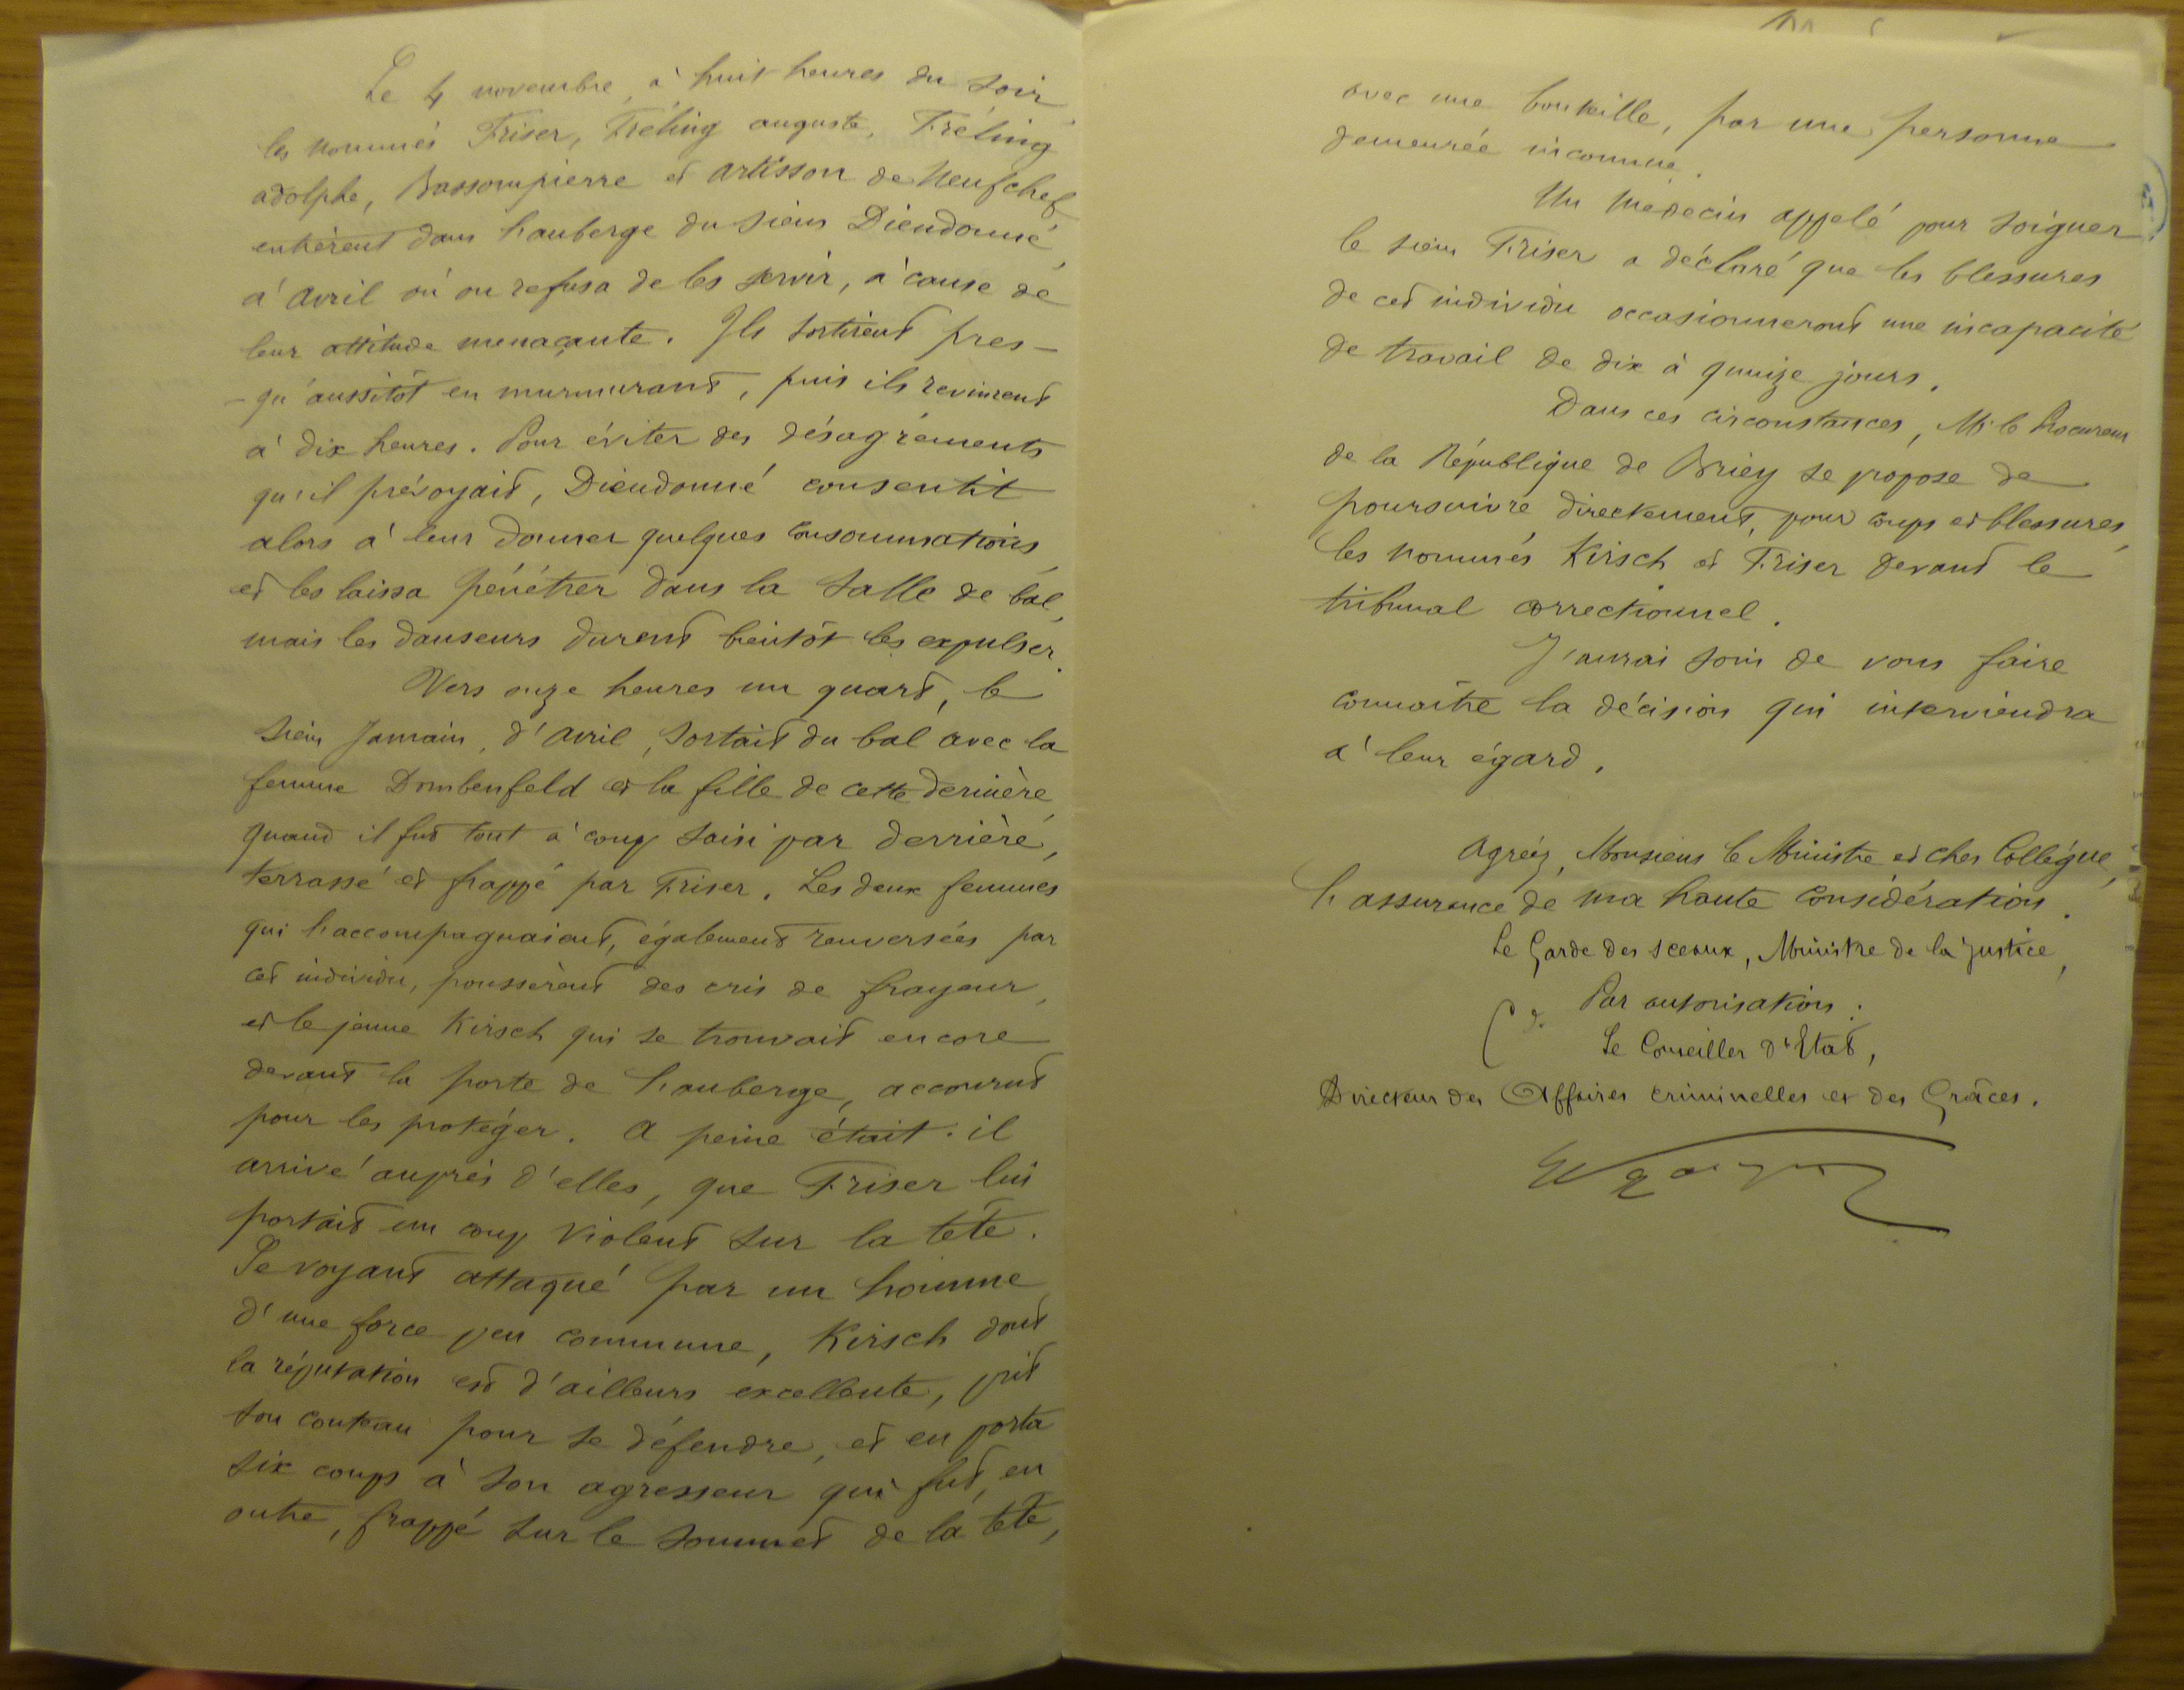 Le 4 novembre, à huit heures du soir,
les nommés Friser, Fréling auguste, Fréling
adolphe, Bassompierre et Artisson de Neufchef
entrèrent dans l'auberge du sieur Dieudonné,
à Avril où on refusa de les servir, à cause de
leur attitude menaçante. Ils sortirent pres-
-qu'aussitôt en murmurant, puis ils revinrent
à dix heures. Pour éviter des désagréments
qu'il prévoyait, Dieudonné consentit
alors à leur donner quelques consommations
et les laissa pénétrer dans la salle de bal,
mais les danseurs durent bientôt les expulser.
Vers onze heures un quart, le
sieur Jamain, d'Avril, sortait du bal avec la
femme Dombenfeld et la fille de cette dernière,
quand il fut tout à coup saisi par derrière,
terrassé et frappé par Friser. Les deux femmes
qui l'accompagnaient, également renversées par
cet individu, poussèrent des cris de frayeur,
et le jeune Kirsch qui se trouvait encore
devant la porte de l'auberge, accourut
pour les protéger. A peine était-il
arrivé auprès d'elles, que Friser lui
portait un coup violent sur la tête.
Se voyant attaqué par un homme
d'une force peu commune, Kirsch dont
la réputation est d'ailleurs excellente, prit
son couteau pour se défendre, et en porta
six coups à son agresseur qui fut, en
outre, frappé sur le sommet de la tête,
avec une bouteille, par une personne
demeurée inconnue.
Un médecin appelé pour soigner
le sieur Friser a déclaré que les blessures
de cet individu occasionneront une incapacité
de travail de dix à quinze jours.
Dans ces circonstances, M. le Procureur
de la République de Briey se propose de
poursuivre directement, pour coups et blessures,
les nommés Kirsch et Friser devant le
tribunal correctionnel.
J'aurai soin de vous faire
connaître la décision qui interviendra
à leur égard.
Agréez, Monsieur le Ministre et cher Collègue,
l'assurance de ma haute considération.
Le Garde des sceaux, Ministre de la Justice,
Par autorisation :
Le Conseiller d'Etat,
Directeur des Affaires criminelles et des Grâces.